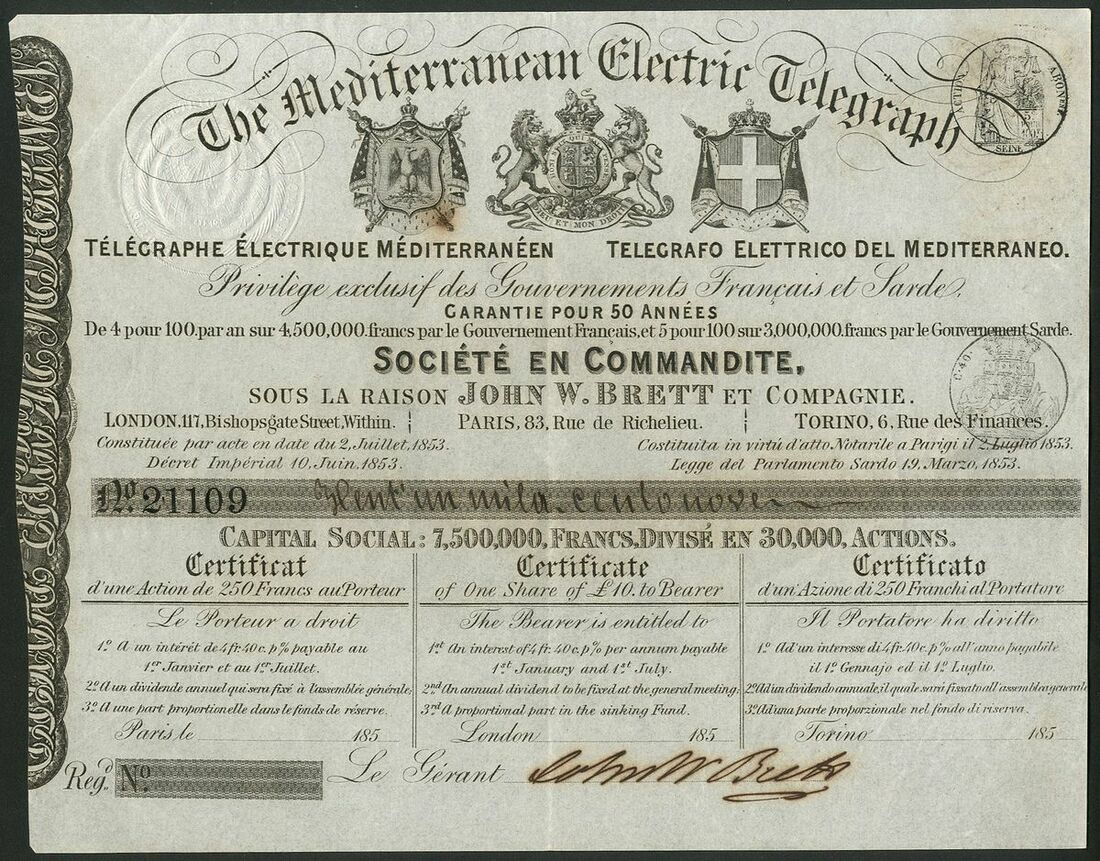 The Mediterranean Electric Telegraph
ACTION. ABONEMT
SEINE
DIEU ET MON DROIT
TÉLÉGRAPHE ÉLECTRIQUE MÉDITERRANÉEN TELEGRAFO ELETTRICO DEL MEDITERRANEO.
Privilège exclusif des Gouvernements Français et Sarde.
GARANTIE POUR 50 ANNÉES
De 4 pour 100. par an sur 4,500,000. francs par le Gouvernement Français, et 5 pour 100 sur 3,000,000. francs par le Gouvernement Sarde.
SOCIÉTÉ EN COMMANDITE,
SOUS LA RAISON JOHN W. BRETT ET COMPAGNIE.
C. 40.
LONDON, 117, Bishopsgate Street, Within. PARIS, 83, Rue de Richelieu. TORINO, 6, Rue des Finances.
Constituée par acte en date du 2, Juillet, 1853. Costituita in virtú d'atto Notarile a Parigi il 2 Luglio 1853.
Décret Impérial 10, Juin. 1853. Legge del Parlamento Sardo 19. Marzo, 1853.
No. 21109 Vent'un mila cento nove
CAPITAL SOCIAL: 7,500,000, FRANCS, DIVISÉ EN 30,000, ACTIONS.
Certificat
d'une Action de 250 Francs au Porteur
Le Porteur a droit
1o. A un intérét de 4 fr. 40 c. p% payable au
1er Janvier et au 1er Juillet.
2o. A un dividende annuel qui sera fixé à l'assemblée générale;
3o. A une part proportionelle dans le fonds de réserve.
Paris le 185
Certificate
of One Share of £10. to Bearer
The Bearer is entitled to
1st An interest of 4 fr. 40 c. p% per annum payable
1st January and 1st July.
2nd An annual dividend to be fixed at the general meeting;
3rd A proportional part in the sinking Fund.
London 185
Certificato
d'un' Azione di 250 Franchi al Portatore
Il Portatore ha diritto
1o. Ad'un interesse di 4 fr. 40 c. p% all'anno payabile
il 1o Gennajo ed il 1o Luglio.
2o. Ad'un dividendo annuale, il quale sará fissato all'assemblea generale
3o. Ad'una parte proporzionale nel fondo di riserva.
Torino 185
Regd. No. Le Gérant John W Brett